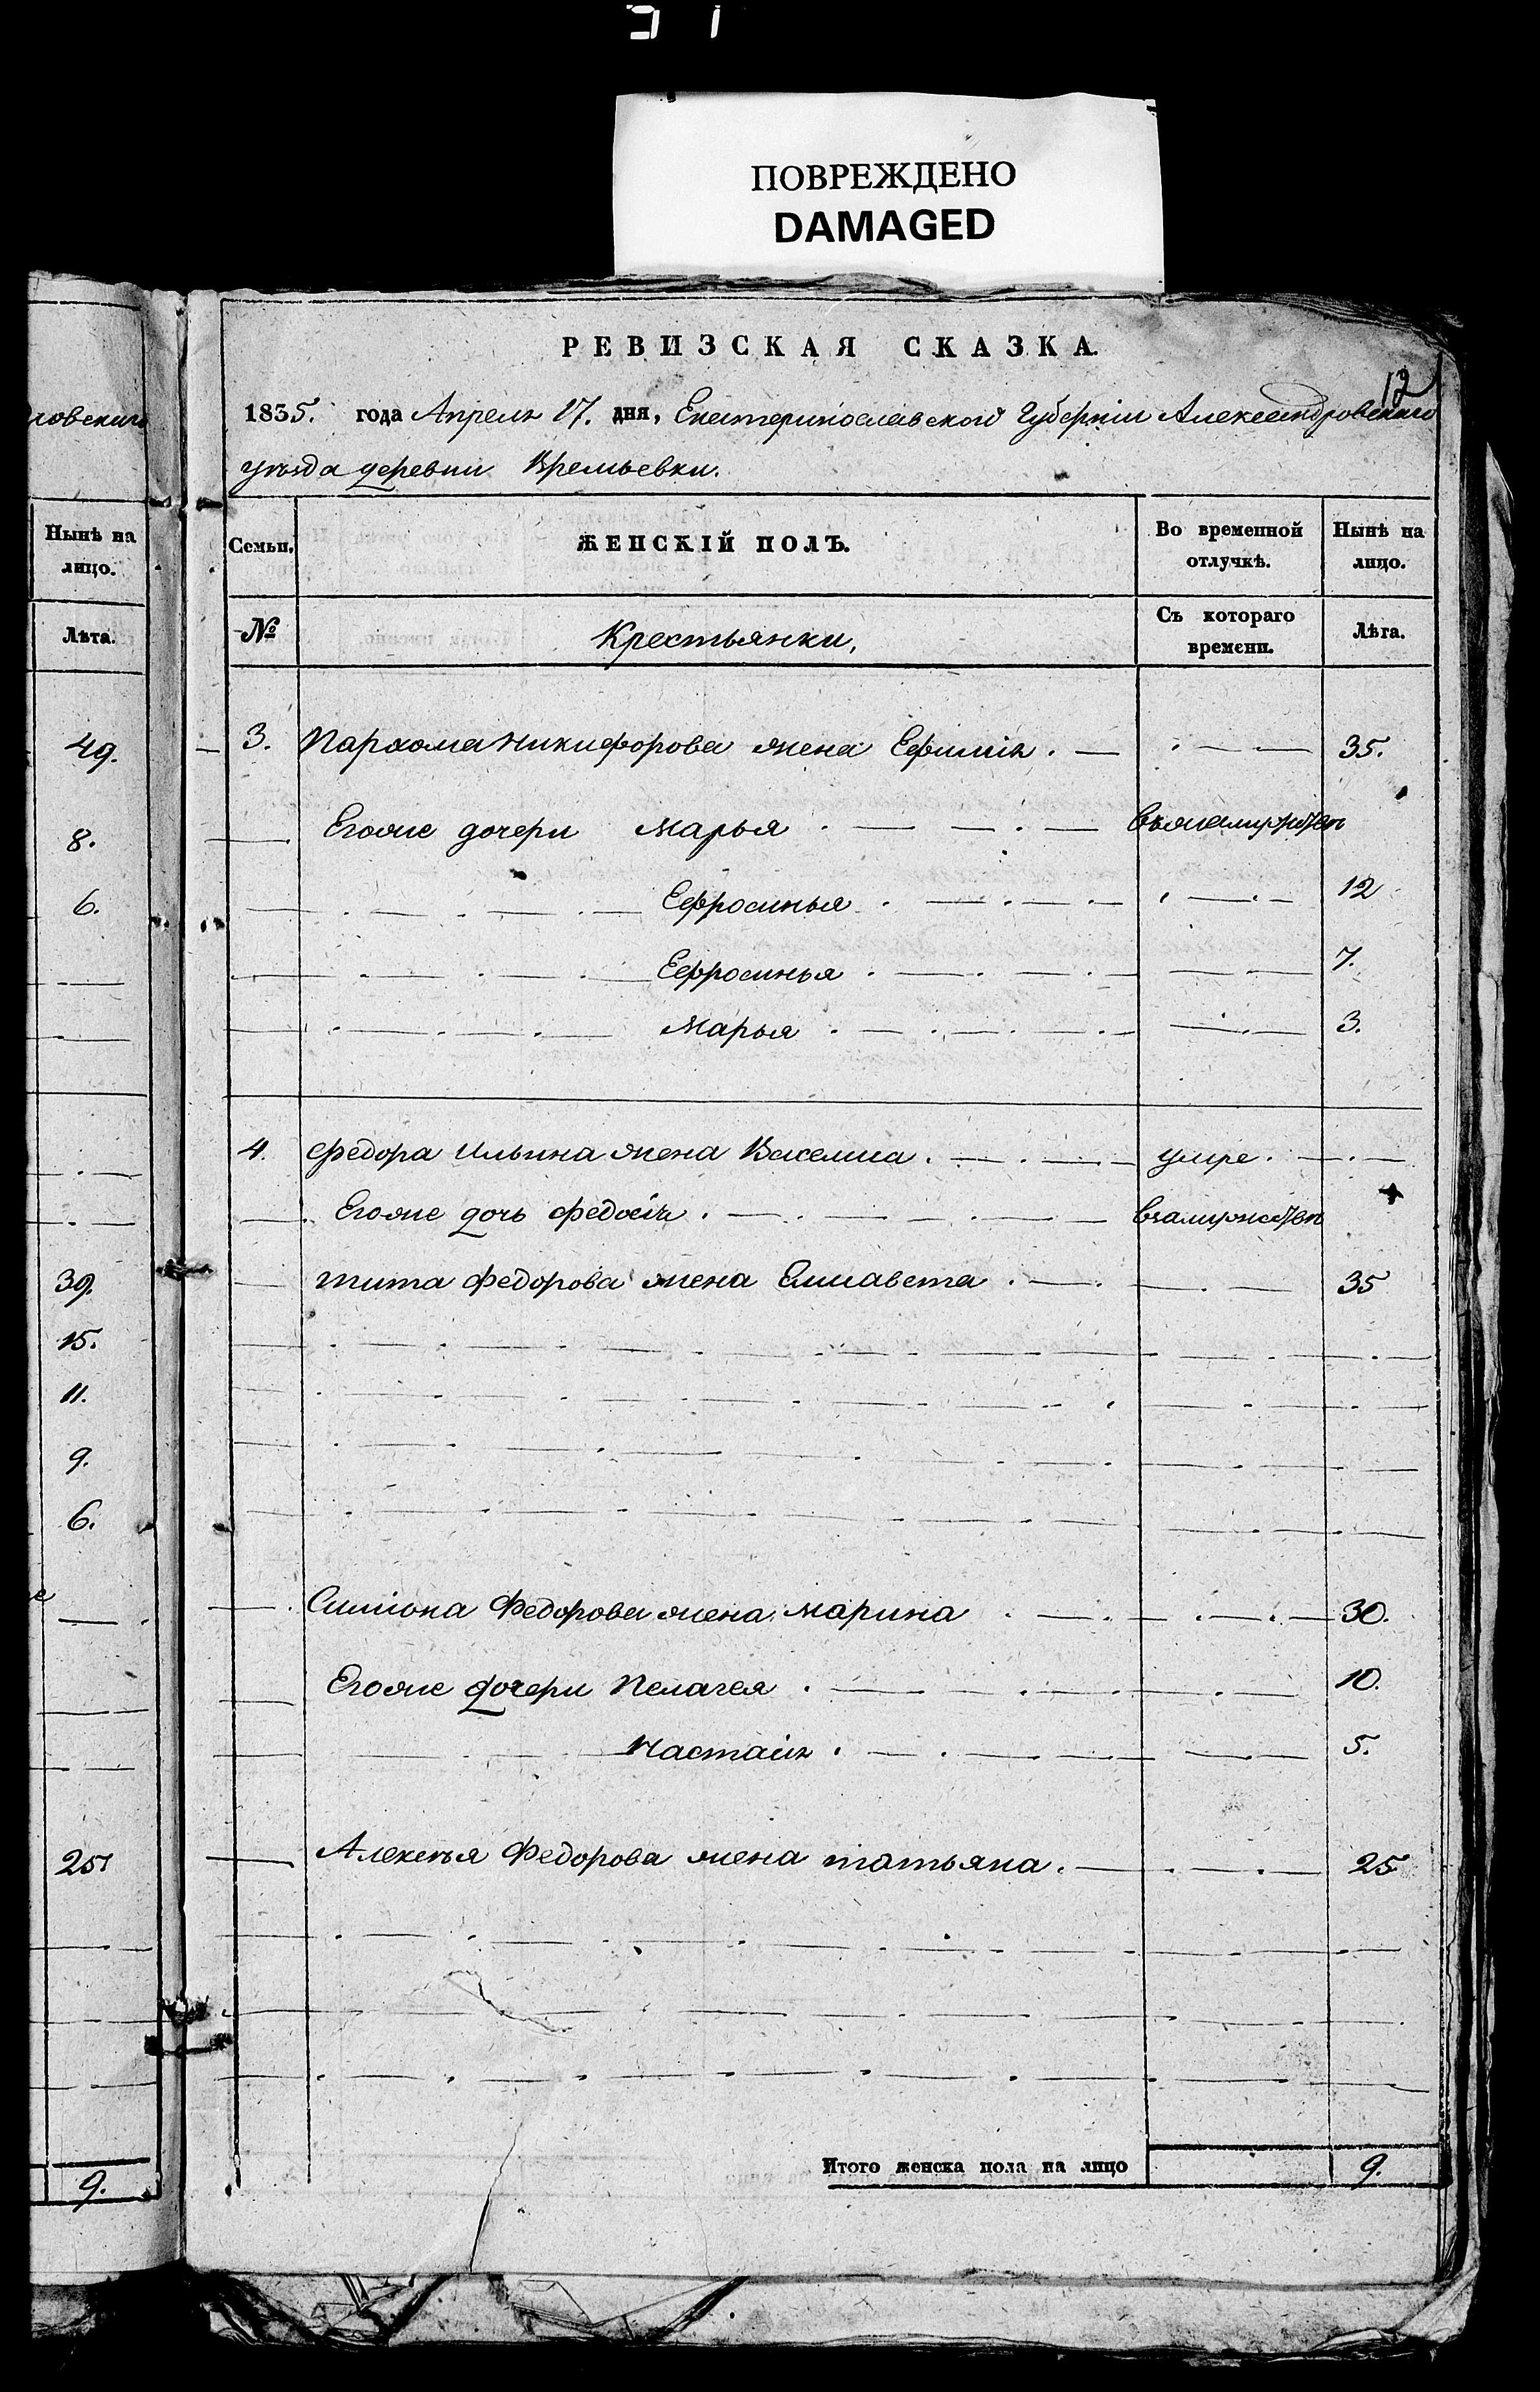 ПОВРЕЖДЕНО
DAMAGED
РЕВИЗСКАЯ СКАЗКА.
12
1835. года Апреля 17. дня, Екатеринославской Губерніи Александровскаго
уѣзда деревни Времьевки.
Семьи. ЖЕНСКІЙ ПОЛЪ. Во временной отлучкѣ. Нынѣ на лицо.
№ Крестьянки, Съ котораго времени. Лѣта.
3. Пархома Никифорова жена Ефимія. 35.
Егожѣ дочери Марья взамужстве
Ефросинья 12
Ефросинья 7.
Марья 3.
4. Федора Ильина жена умре.
Егоже дочь Федосія взамужстве
Тита Федорова жена Елисавета 35
Симіона Федорова жена Марина 30.
Егоже дочери Пелагея 10.
Настасія 5.
Алексѣя Федорова жена Татьяна. 25
Итого женска пола на лицо 9.
ровскаго
Нынѣ на
лицо.
Лѣта.
49.
8.
6.
39.
15.
11.
9.
6.
25
9.